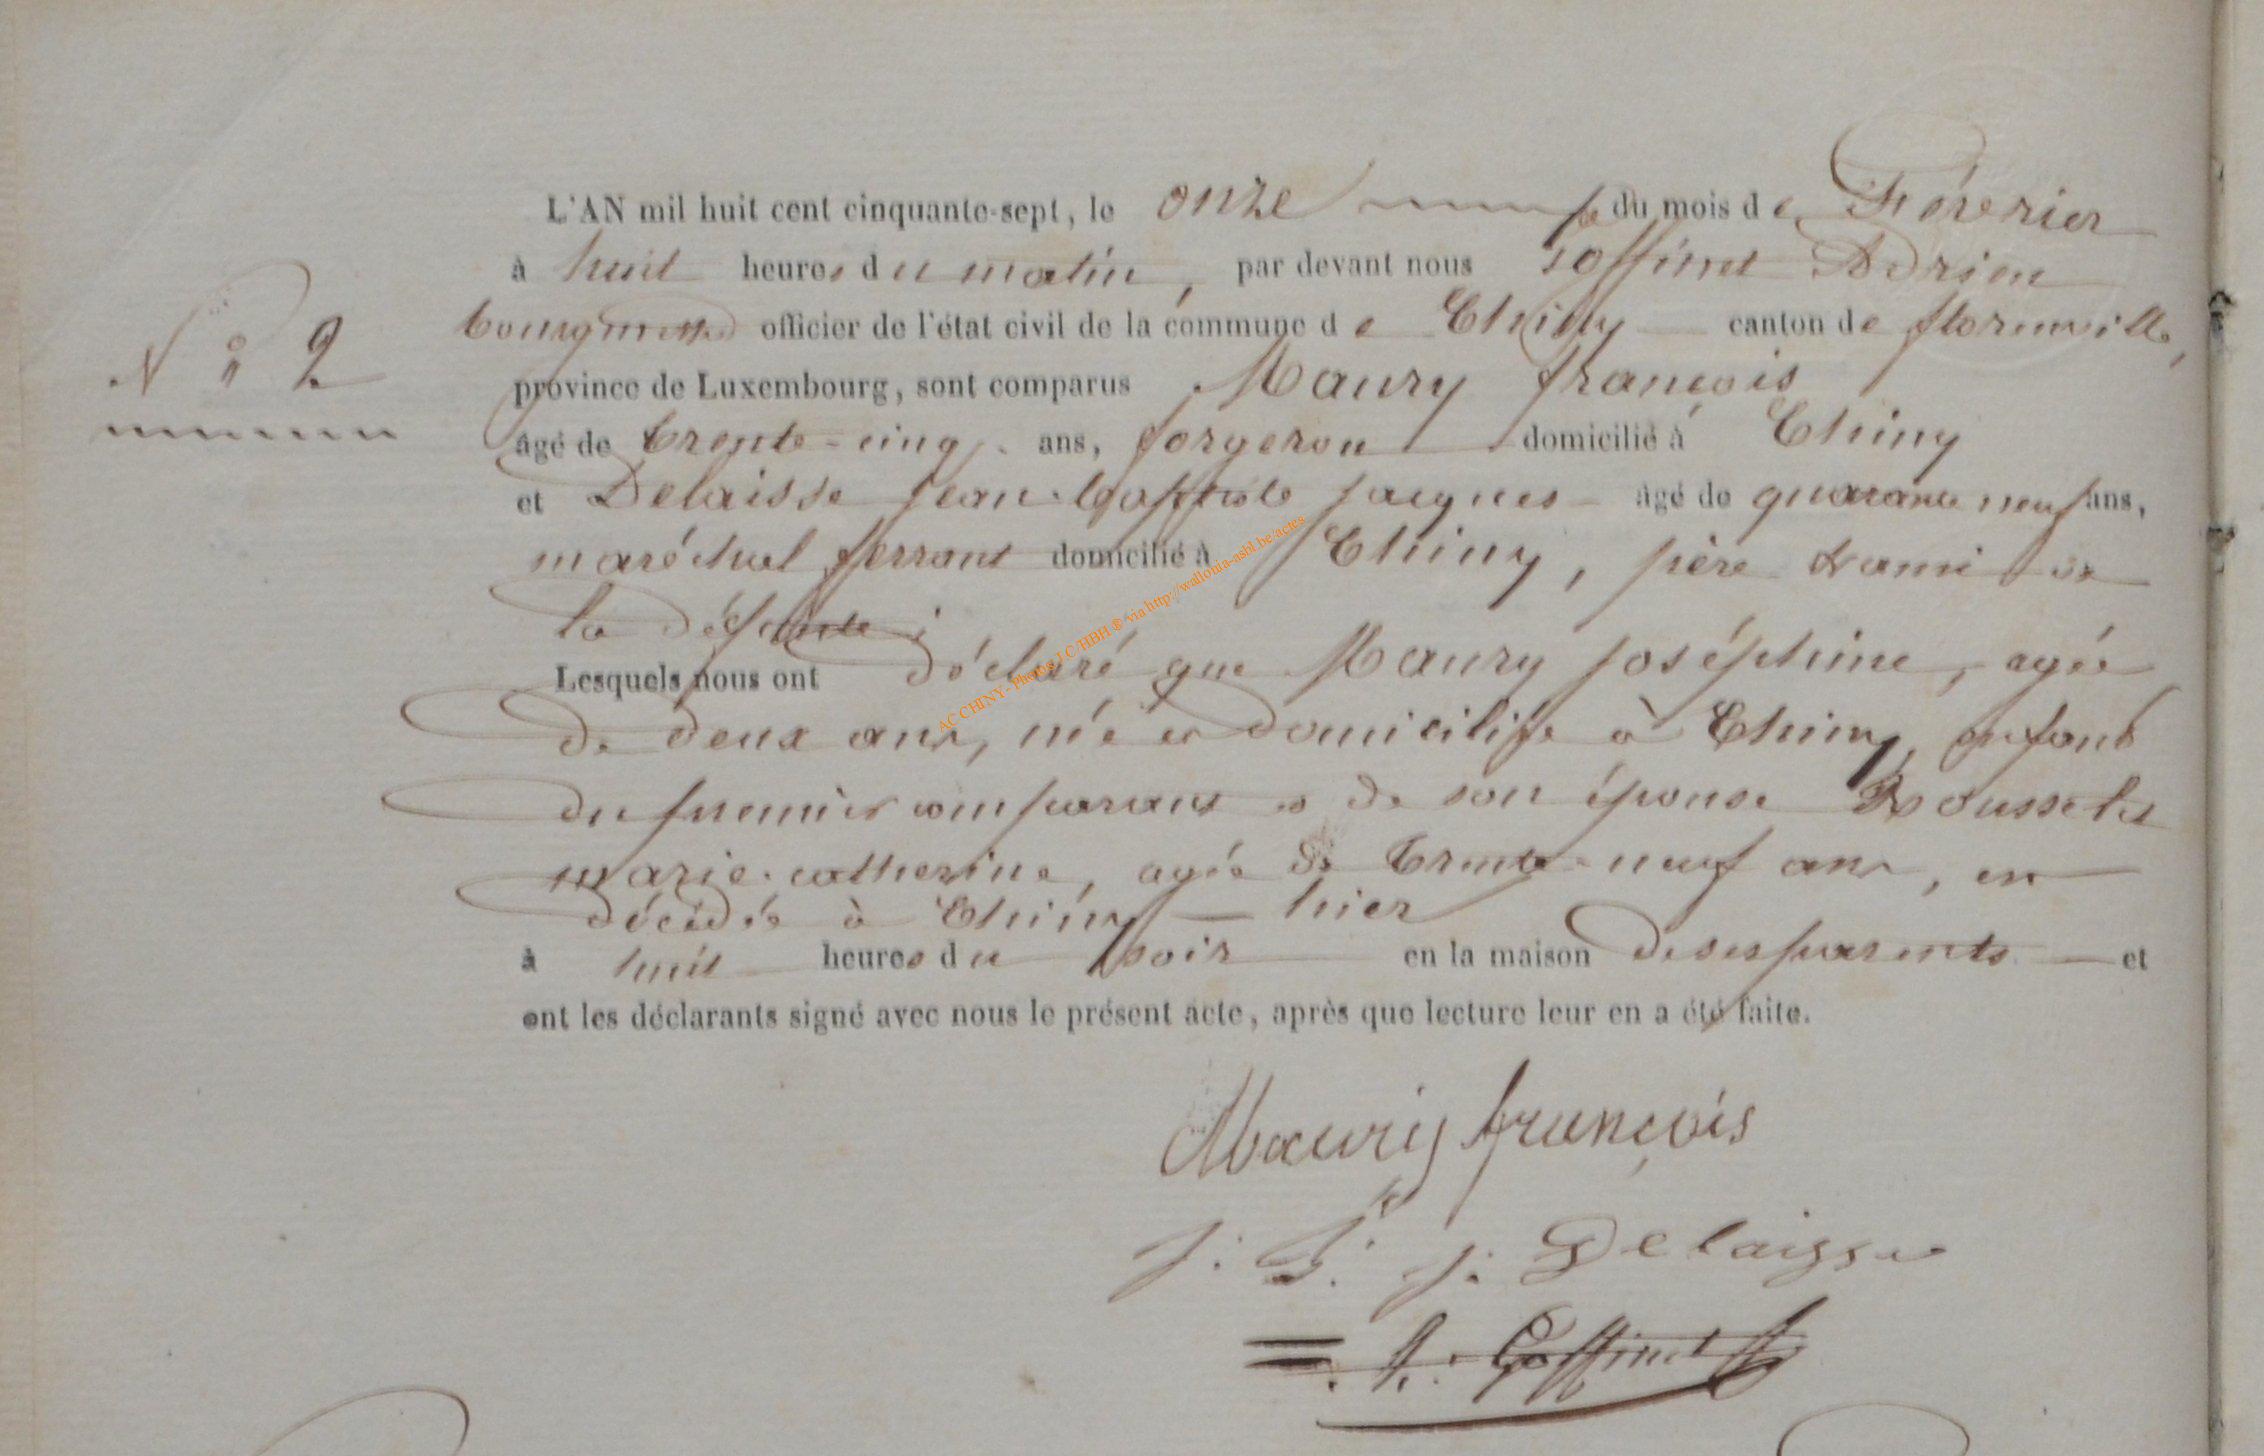 L'AN mil huit cent cinquante-sept, le onze du mois de Février
à huit heures du matin, par devant nous Goffinet Adrien
N° 2
bourgmestre officier de l'état civil de la commune de Chiny canton de florenville,
province de Luxembourg, sont comparus Maury françois
âgé de trente-cinq ans, forgeron domicilié à Chiny
et Delaisse Jean-baptiste Jacques âgé de quarante neuf ans,
maréchal ferrant domicilié à Chiny, père & ami de
la défunte ;
Lesquels nous ont déclaré que Maury Joséphine, agée
de deux ans, née et domiciliée à Chiny, enfant
du premier comparant et de son épouse Rousselet
marie-catherine, agée de trente-neuf ans, est
décédée à Chiny hier
à huit heures du soir en la maison de ses parents et
ont les déclarants signé avec nous le présent acte, après que lecture leur en a été faite.
Maury françois
J. Bte J. Delaisse
A. Goffinet
AC CHINY- Photos J C HBH ® via http://wallonia-asbl.be/actes